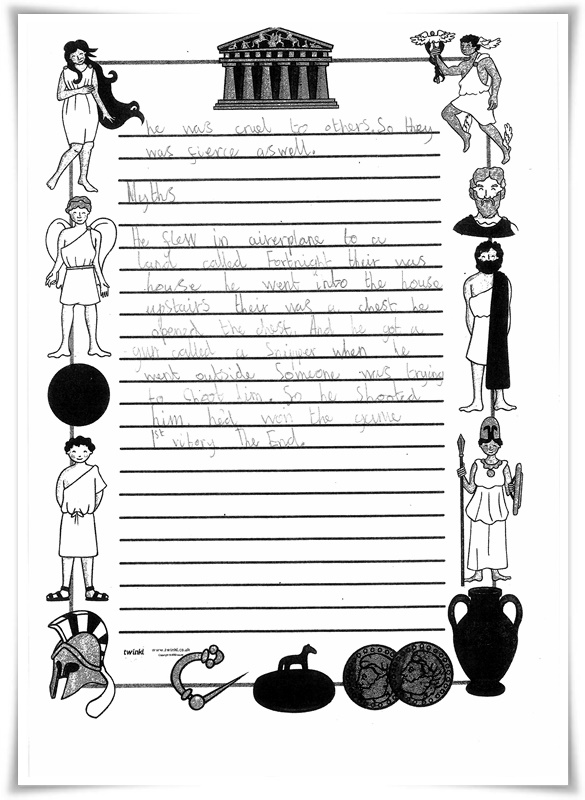 he was cruel to others. So they
was fierce aswell.
Myths
He flew in airerplane to a
land called Fortnight their was
hourse he went into the house
upstairs their was a chest he
opened the chest. And he got a
gun called a Snipper when he
went outside Someone was trying
to shoot him. So he Shooted
him. he'd won the game
1st victory The End.
twinkl www.twinkl.co.uk